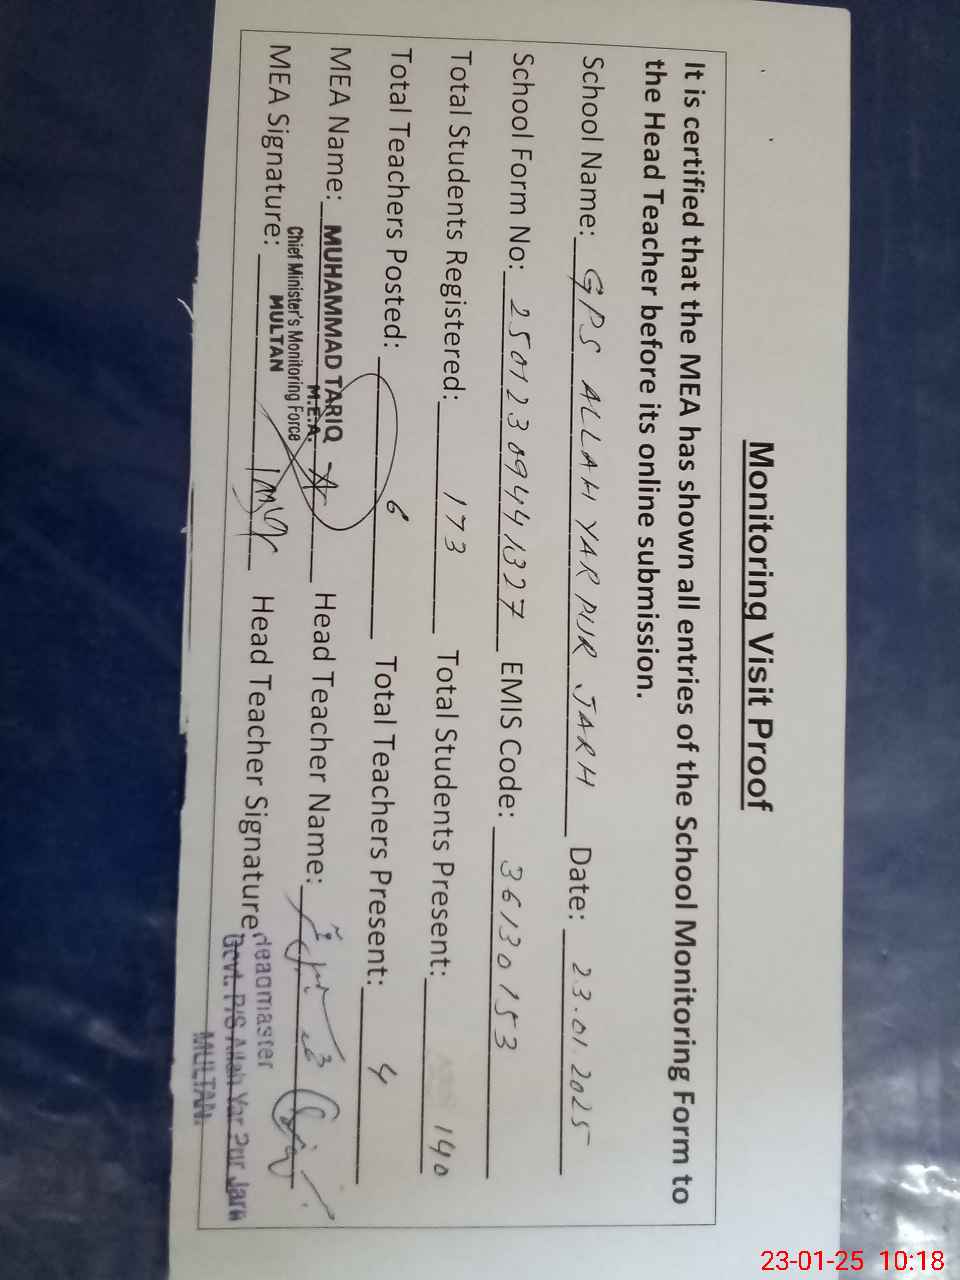 Monitoring Visit Proof
It is certified that the MEA has shown all entries of the School Monitoring Form to
the Head Teacher before its online submission.
School Name: GPS ALLAH YAR PUR JARH Date: 23.01.2025
School Form No: 25012309441327 EMIS Code: 36130153
Total Students Registered: 173 Total Students Present: 140
Total Teachers Posted: 6 Total Teachers Present: 4
MEA Name: MUHAMMAD TARIQ Head Teacher Name:
M.E.A.
Chief Minister's Monitoring Force
MULTAN
MEA Signature: Head Teacher Signature
Headmaster
Govt. P/S Allah Yar Pur Jarh
MULTAN.
23-01-25 10:18